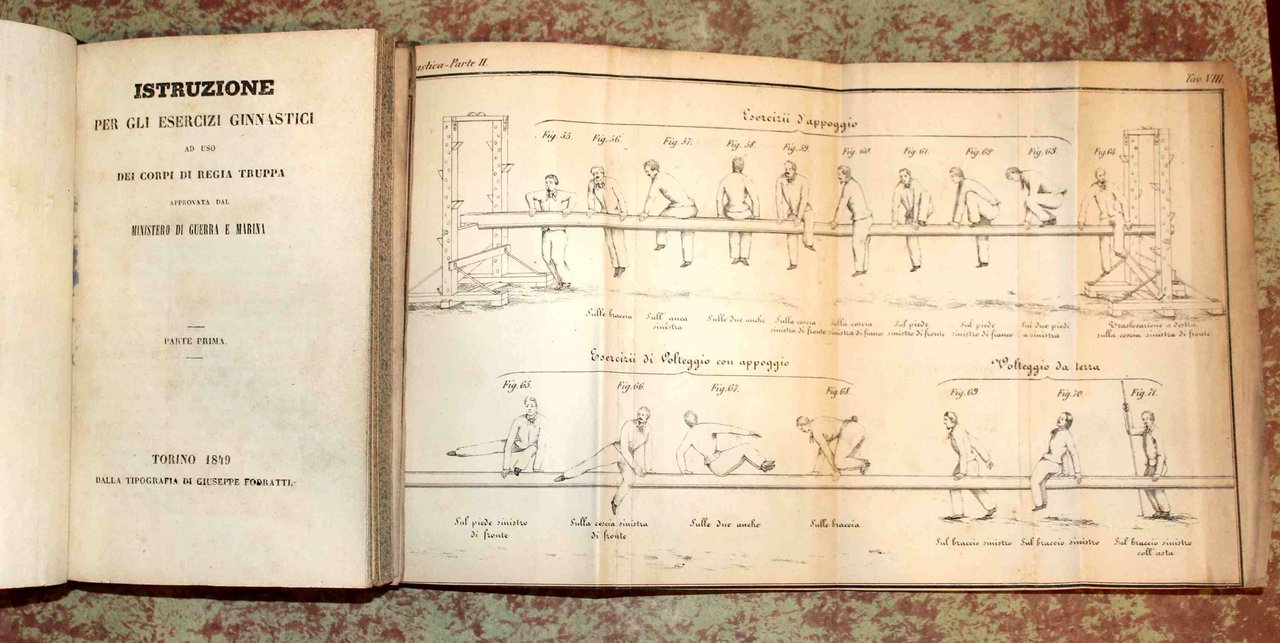 ISTRUZIONE
PER GLI ESERCIZI GINNASTICI
AD USO
DEI CORPI DI REGIA TRUPPA
APPROVATA DAL
MINISTERO DI GUERRA E MARINA
PARTE PRIMA.
TORINO 1849
DALLA TIPOGRAFIA DI GIUSEPPE FODRATTI.
astica-Parte II. Tav. VIII.
Esercizii d'appoggio
Fig. 55. Fig. 56. Fig. 57. Fig. 58. Fig. 59. Fig. 60. Fig. 61. Fig. 62. Fig. 63. Fig. 64.
Sulle braccia Sull'anca Sulle due anche Sulla coscia Sulla coscia Sul piede Sul piede Sui due piedi Traslocazione a destra
sinistra sinistra di fronte sinistra di fianco sinistro di fronte sinistro di fianco a sinistra sulla coscia sinistra di fronte
Esercizii di Volteggio con appoggio Volteggio da terra
Fig. 65. Fig. 66. Fig. 67. Fig. 68. Fig. 69. Fig. 70. Fig. 71.
Sul piede sinistro Sulla coscia sinistra Sulle due anche Sulle braccia
di fronte di fronte
Sul braccio sinistro Sul braccio sinistro Sul braccio sinistro
coll'asta